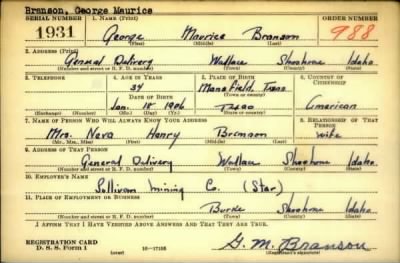 Branson, George Maurice
SERIAL NUMBER 1. NAME (Print) ORDER NUMBER
1931 George Maurice Branson 988
(First) (Middle) (Last)
2. ADDRESS (Print)
General Delivery Wallace Shoshone Idaho
(Number and street or R. F. D. number) (Town) (County) (State)
3. TELEPHONE 4. AGE IN YEARS 5. PLACE OF BIRTH 6. COUNTRY OF CITIZENSHIP
34 Mansfield, Texas
DATE OF BIRTH (Town or county)
Jan. 18 1906 Texas American
(Exchange) (Number) (Mo.) (Day) (Yr.) (State or country)
7. NAME OF PERSON WHO WILL ALWAYS KNOW YOUR ADDRESS 8. RELATIONSHIP OF THAT PERSON
Mrs. Neva Henry Branson wife
(Mr., Mrs., Miss) (First) (Middle) (Last)
9. ADDRESS OF THAT PERSON
General Delivery Wallace Shoshone Idaho
(Number and street or R. F. D. number) (Town) (County) (State)
10. EMPLOYER'S NAME
Sullivan Mining Co. (Star)
11. PLACE OF EMPLOYMENT OR BUSINESS
Burke Shoshone Idaho
(Number and street or R. F. D. number) (Town) (County) (State)
I AFFIRM THAT I HAVE VERIFIED ABOVE ANSWERS AND THAT THEY ARE TRUE.
REGISTRATION CARD
D. S. S. Form 1 (over) 16-17105 G. M. Branson
(Registrant's signature)